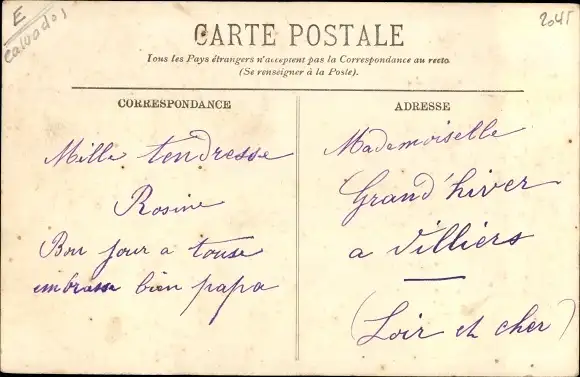 E
Calvados
2045
CARTE POSTALE
Tous les Pays étrangers n'acceptent pas la Correspondance au recto.
(Se renseigner à la Poste).
CORRESPONDANCE
Mille tendresse
Rosine
Bon jour a touse
embrasse bien papa
ADRESSE
Mademoiselle
Grand'hiver
a Villiers
(Loir et cher)